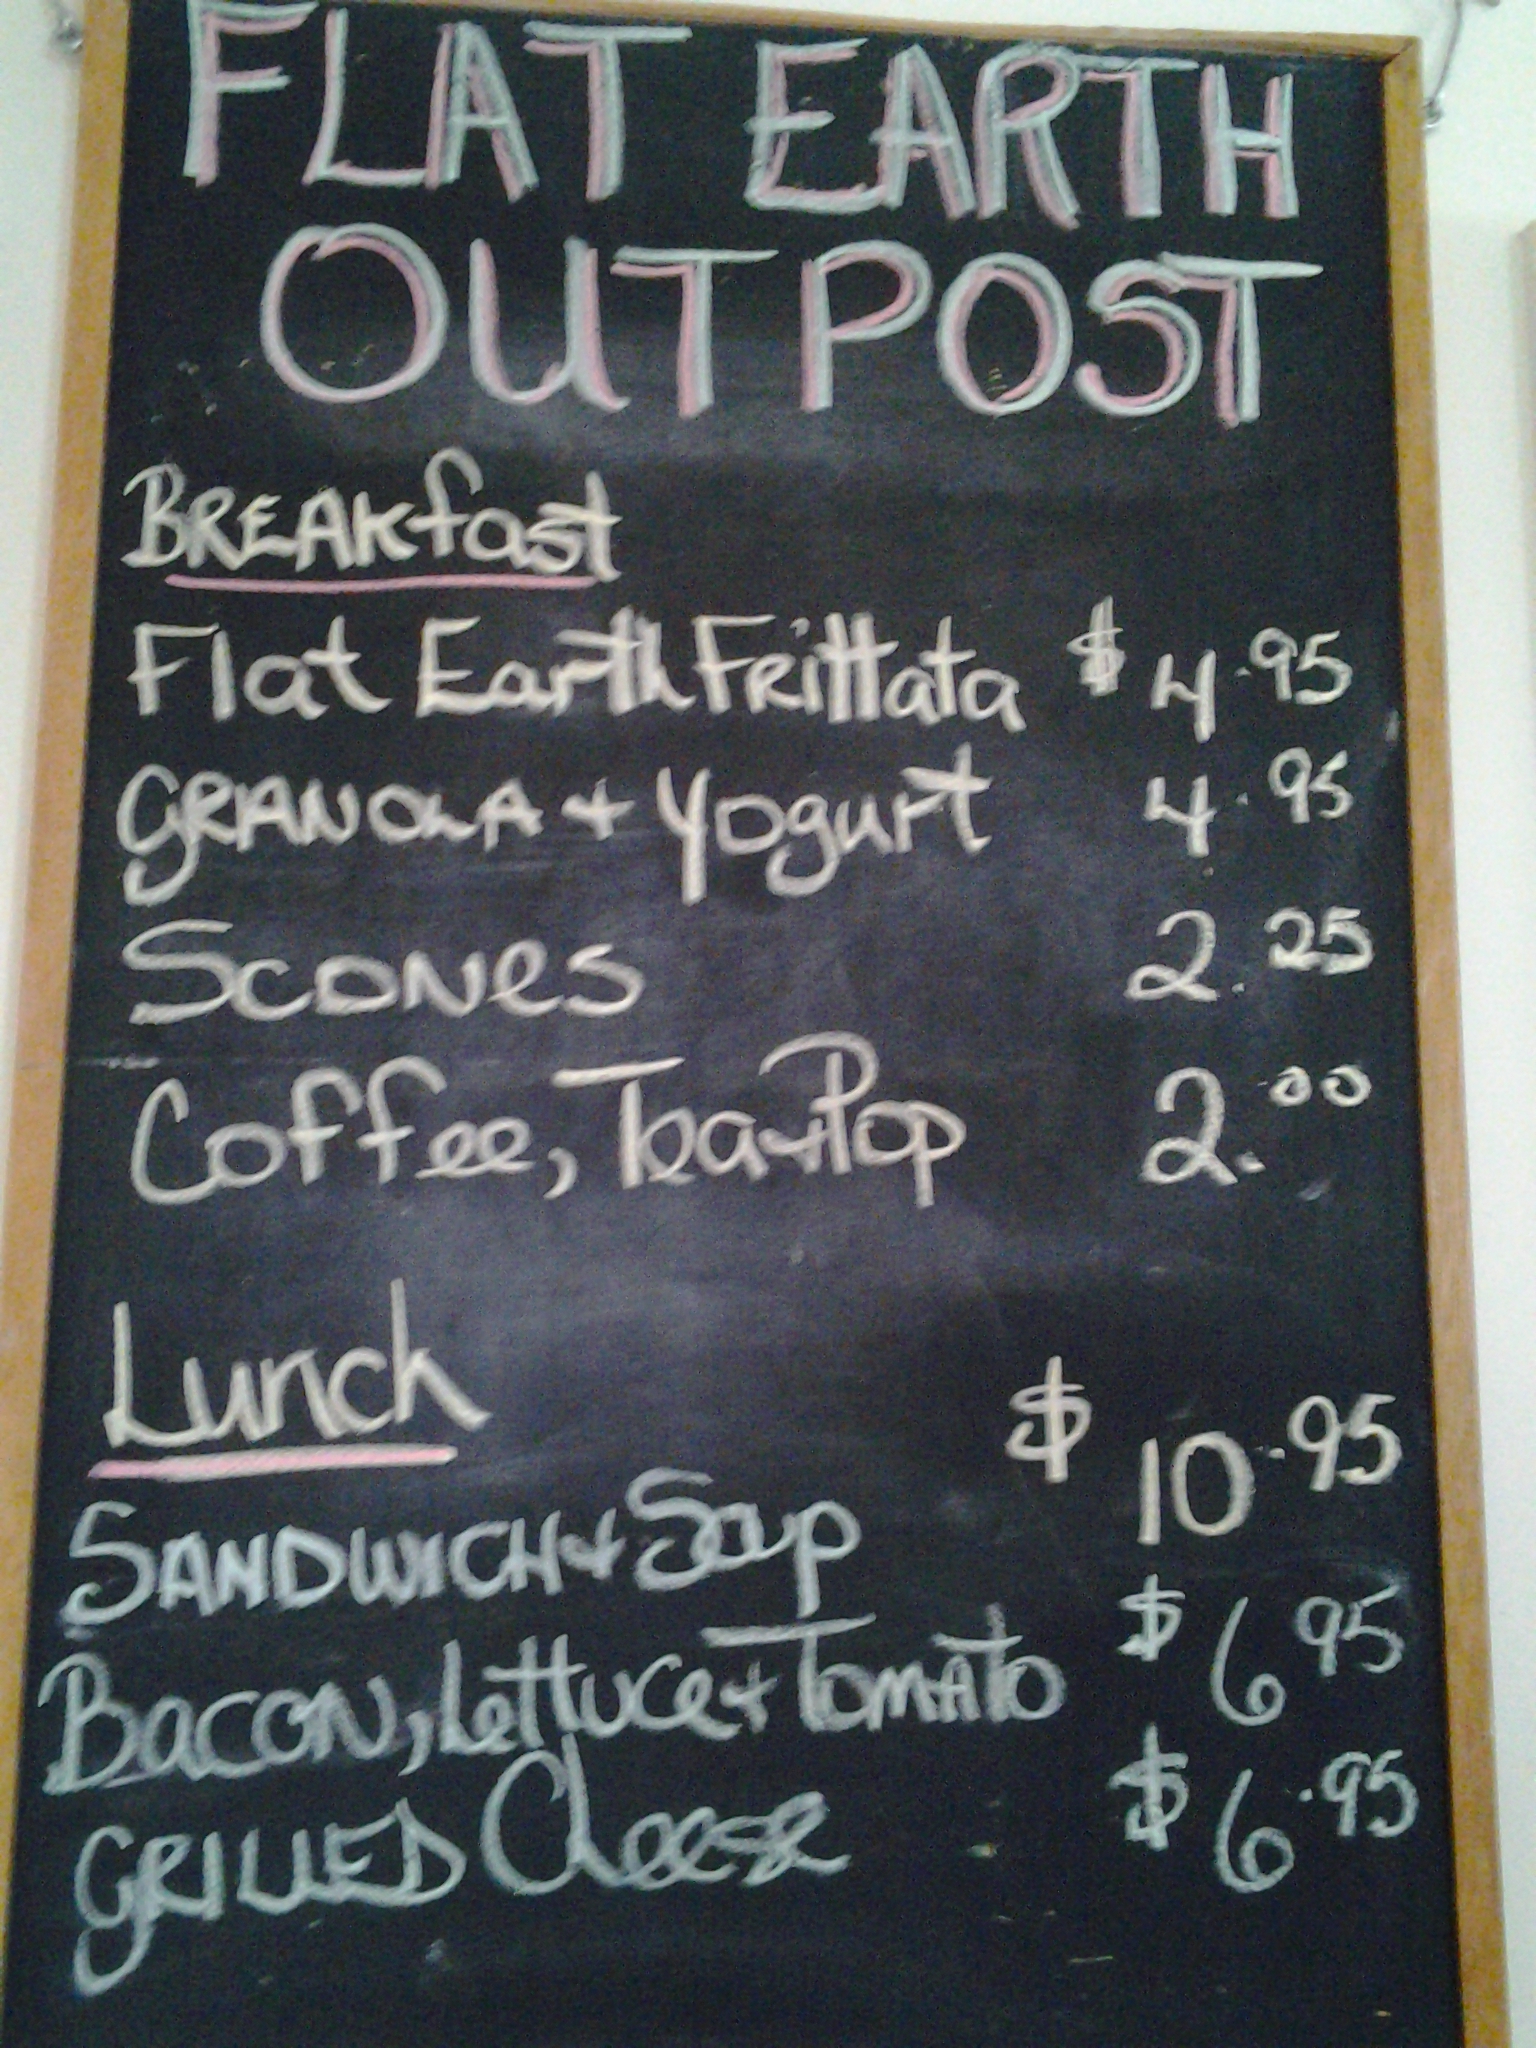 FLAT EARTH
OUTPOST
BREAKfast
Flat Earth Frittata $4.95
GRANOLA + Yogurt 4.95
SCONes 2.25
Coffee, Tea + Pop 2.00
Lunch
SANDWICH + Soup $10.95
BACON, Lettuce + TOMATO $6 95
GRILLED Cheese $6.95